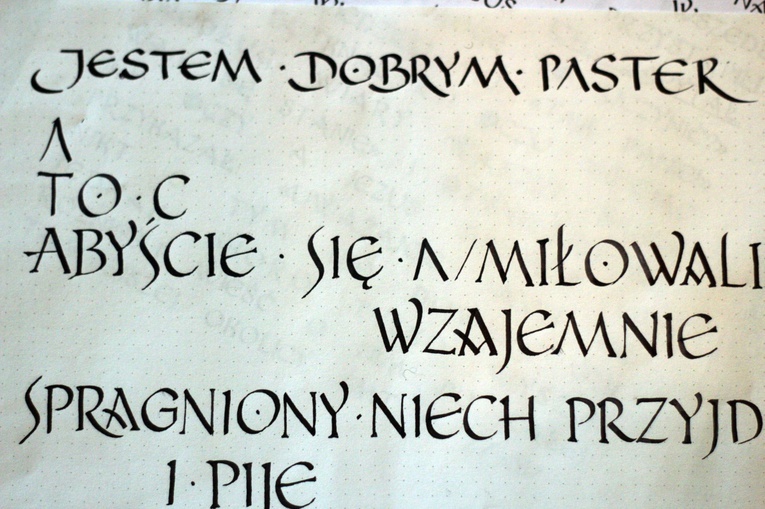 JESTEM · DOBRYM · PASTER
Λ
TO · C
ABYŚCIE · SIĘ · Λ/MIŁOWALI
WZAJEMNIE
SPRAGNIONY · NIECH PRZYJD
I · PIJE